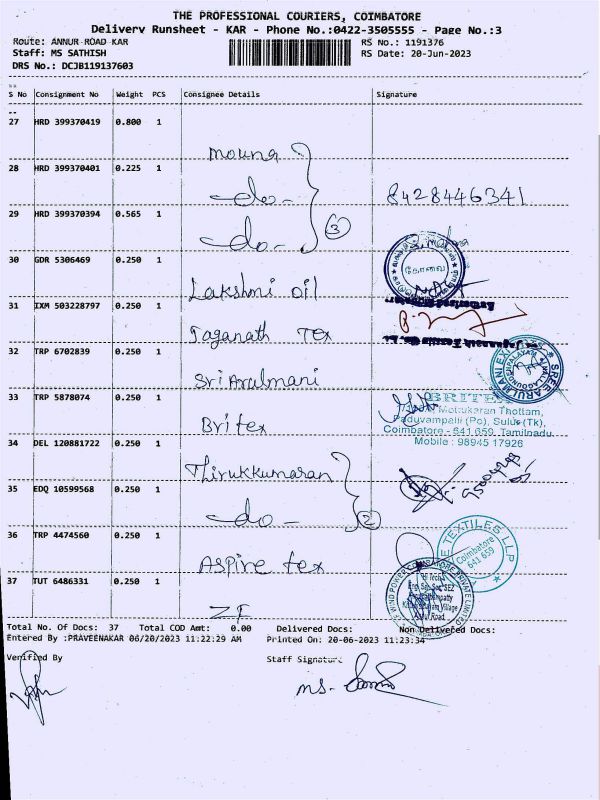 THE PROFESSIONAL COURIERS, COIMBATORE
Delivery Runsheet - KAR - Phone No.:0422-3505555 - Page No.:3
Route: ANNUR ROAD KAR RS No.: 1191376
Staff: MS SATHISH RS Date: 20-Jun-2023
DRS No.: DCJB119137603
S No Consignment No Weight PCS Consignee Details Signature
27 HRD 399370419 0.800 1
mouna
28 HRD 399370401 0.225 1
-do- 8428446341
29 HRD 399370394 0.565 1
-do- 3
30 GDR 5306469 0.250 1
கோவை
Lakshmi oil
31 IXM 503228797 0.250 1
Jaganath Tex
32 TRP 6702839 0.250 1
Sri Arulmani
33 TRP 5878074 0.250 1
BRITEX
Mottukaran Thottam,
Paduvampalli (Po), Sulur (Tk),
Britex
Coimbatore - 641 659, Tamilnadu
Mobile : 98945 17926
34 DEL 120881722 0.250 1
Thirukkumaran
35 EDQ 10599568 0.250 1
-do- 2
36 TRP 4474560 0.250 1
TEXTILES LLP
Coimbatore
641 659
Aspire tex
37 TUT 6486331 0.250 1
ZF
Total No. Of Docs: 37 Total COD Amt: 0.00 Delivered Docs: Non Delivered Docs:
Entered By :PRAVEENAKAR 06/20/2023 11:22:29 AM Printed On: 20-06-2023 11:23:34
Verified By Staff Signature
ms.